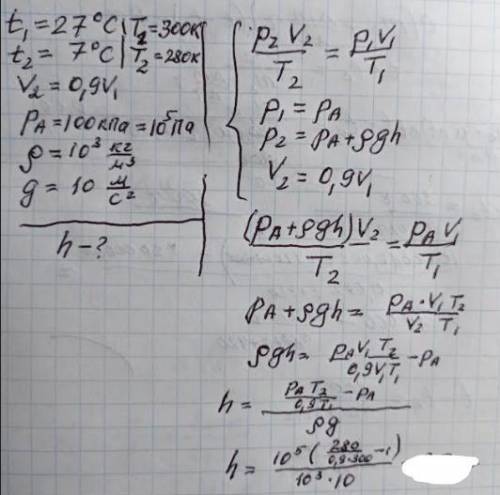 t₁ = 27°C | T₂ = 300к
t₂ = 7°C | T₂ = 280к
V₂ = 0,9V₁
PA = 100кПа = 10⁵Па
ρ = 10³ кг/м³
g = 10 м/с²
h - ?
P₂ V₂ / T₂ = P₁V₁ / T₁
P₁ = PA
P₂ = PA + ρgh
V₂ = 0,9V₁
(PA + ρgh) V₂ / T₂ = PA V₁ / T₁
PA + ρgh = PA · V₁ T₂ / V₂ T₁
ρgh = PA V₁ T₂ / 0,9V₁T₁ - PA
h = (PA T₂ / 0,9T₁ - PA) / ρg
h = 10⁵ (280 / 0,9·300 - 1) / 10³ · 10